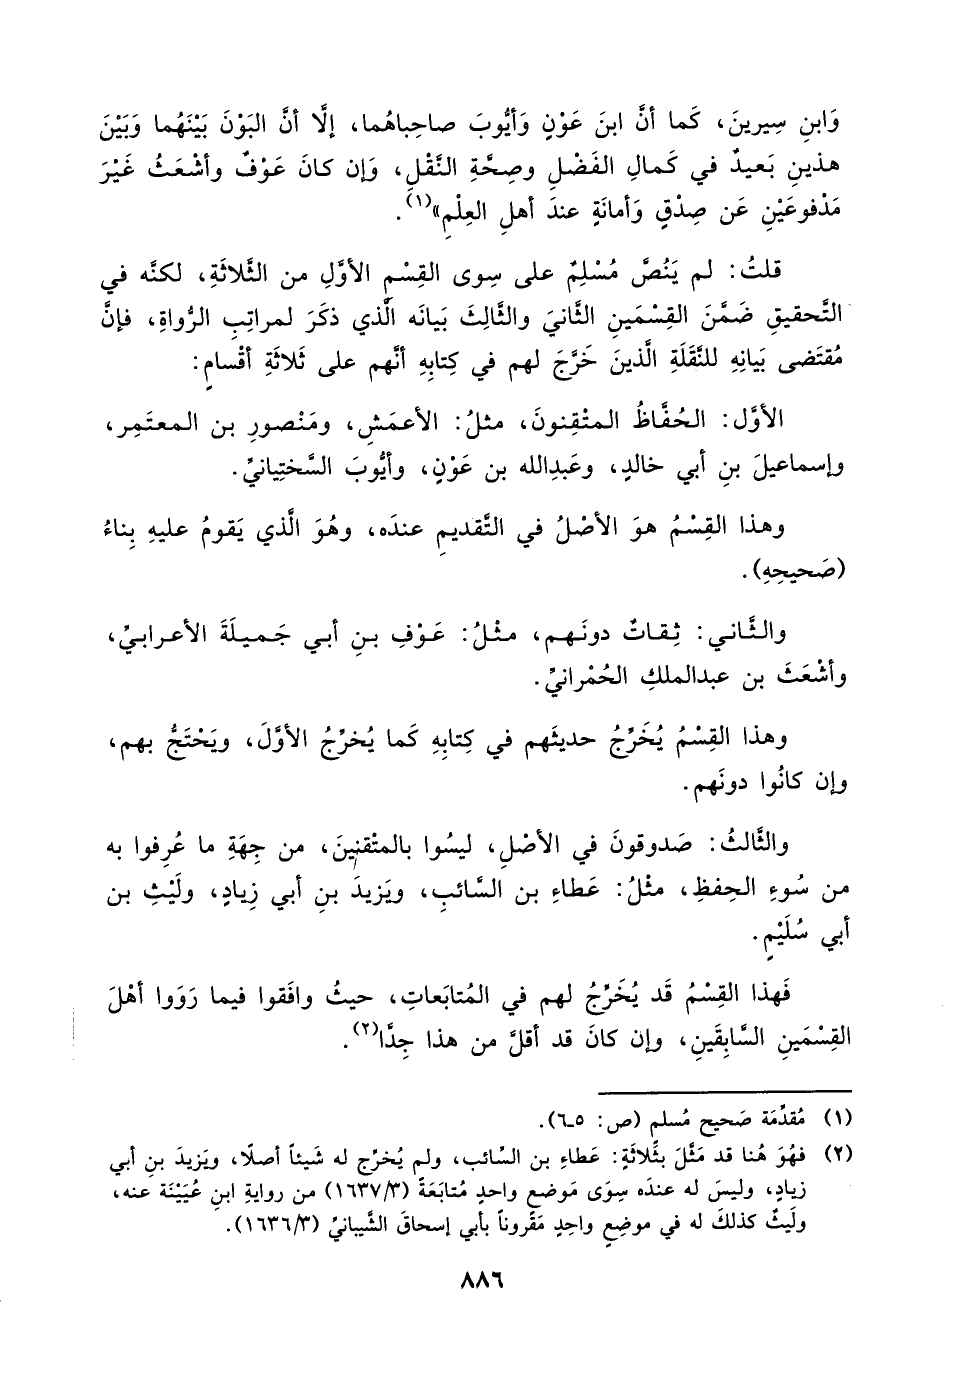 وَابنِ سِيرينَ، كَما أنَّ ابنَ عَوْنٍ وَأيُّوبَ صاحِباهُما، إلَّا أنَّ البَوْنَ بَيْنَهُما وَبَيْنَ
هذينِ بَعيدٌ في كَمالِ الفَضْلِ وصِحَّةِ النَّقْلِ، وَإن كانَ عَوْفٌ وأشْعَثُ غَيْرَ
مَدْفوعَيْنِ عَن صِدْقٍ وَأمانَةٍ عندَ أهلِ العِلْمِ»(١).
قلتُ: لم يَنُصَّ مُسْلِمٌ على سِوى القِسْمِ الأوَّلِ من الثَّلاثَةِ، لكنَّه في
التَّحقيقِ ضَمَّنَ القِسْمَينِ الثَّانيَ والثَّالِثَ بَيانَه الَّذي ذكَرَ لمراتِبِ الرُّواةِ، فإنَّ
مُقتَضى بَيانِهِ للنَّقَلَةِ الَّذينَ خَرَّجَ لهم في كِتابِهِ أنَّهم على ثَلاثَةِ أقْسامٍ:
الأوَّل: الحُفَّاظُ المتْقِنونَ، مثلُ: الأعمَشِ، ومَنْصورِ بن المعتَمِر،
وإسماعيلَ بنِ أبي خالدٍ، وعَبدِالله بن عَوْنٍ، وأيُّوبَ السَّختِيانيِّ.
وهذا القِسْمُ هوَ الأصْلُ في التَّقديمِ عندَه، وهُوَ الَّذي يَقومُ عليهِ بِناءُ
(صَحيحِهِ).
والثَّاني: ثِقاتٌ دونَهم، مثْلُ: عَوْفِ بنِ أبي جَميلَةَ الأعرابيِّ،
وأشْعَثَ بن عبدالملكِ الحُمْرانيِّ.
وهذا القِسْمُ يُخَرِّجُ حديثَهم في كِتابِهِ كَما يُخرِّجُ الأوَّلَ، ويَحْتَجُّ بهم،
وإن كانُوا دونَهم.
والثَّالثُ: صَدوقونَ في الأصْلِ، ليسُوا بالمتْقنِينَ، من جِهَةِ ما عُرِفوا به
من سُوءِ الحِفظِ، مثْلُ: عَطاءِ بن السَّائبِ، ويَزيدَ بنِ أبي زِيادٍ، ولَيْثِ بن
أبي سُلَيْمٍ.
فَهذا القِسْمُ قَد يُخَرِّجُ لهم في المُتابَعاتِ، حيثُ وافَقوا فيما رَوَوا أهْلَ
القِسْمَينِ السَّابِقَينِ، وإن كانَ قد أقلَّ من هذا جِدًّا(٢).
(١) مُقدِّمَة صَحيح مُسلم (ص: ٥ـ٦).
(٢) فهُوَ هُنا قد مَثَّلَ بثَلاثَةٍ: عَطاءِ بن السَّائب، ولم يُخرِّج له شَيئاً أصلًا، ويَزيدَ بنِ أبي
زيادٍ، وليسَ له عندَه سِوَى مَوضعٍ واحدٍ مُتابَعَةً (١٦٣٧/٣) من روايةِ ابنِ عُيَيْنَة عنه،
ولَيثٌ كذلكَ له في موضِعٍ واحِدٍ مَقْروناً بأبي إسحاقَ الشَّيبانيِّ (١٦٣٦/٣).
٨٨٦